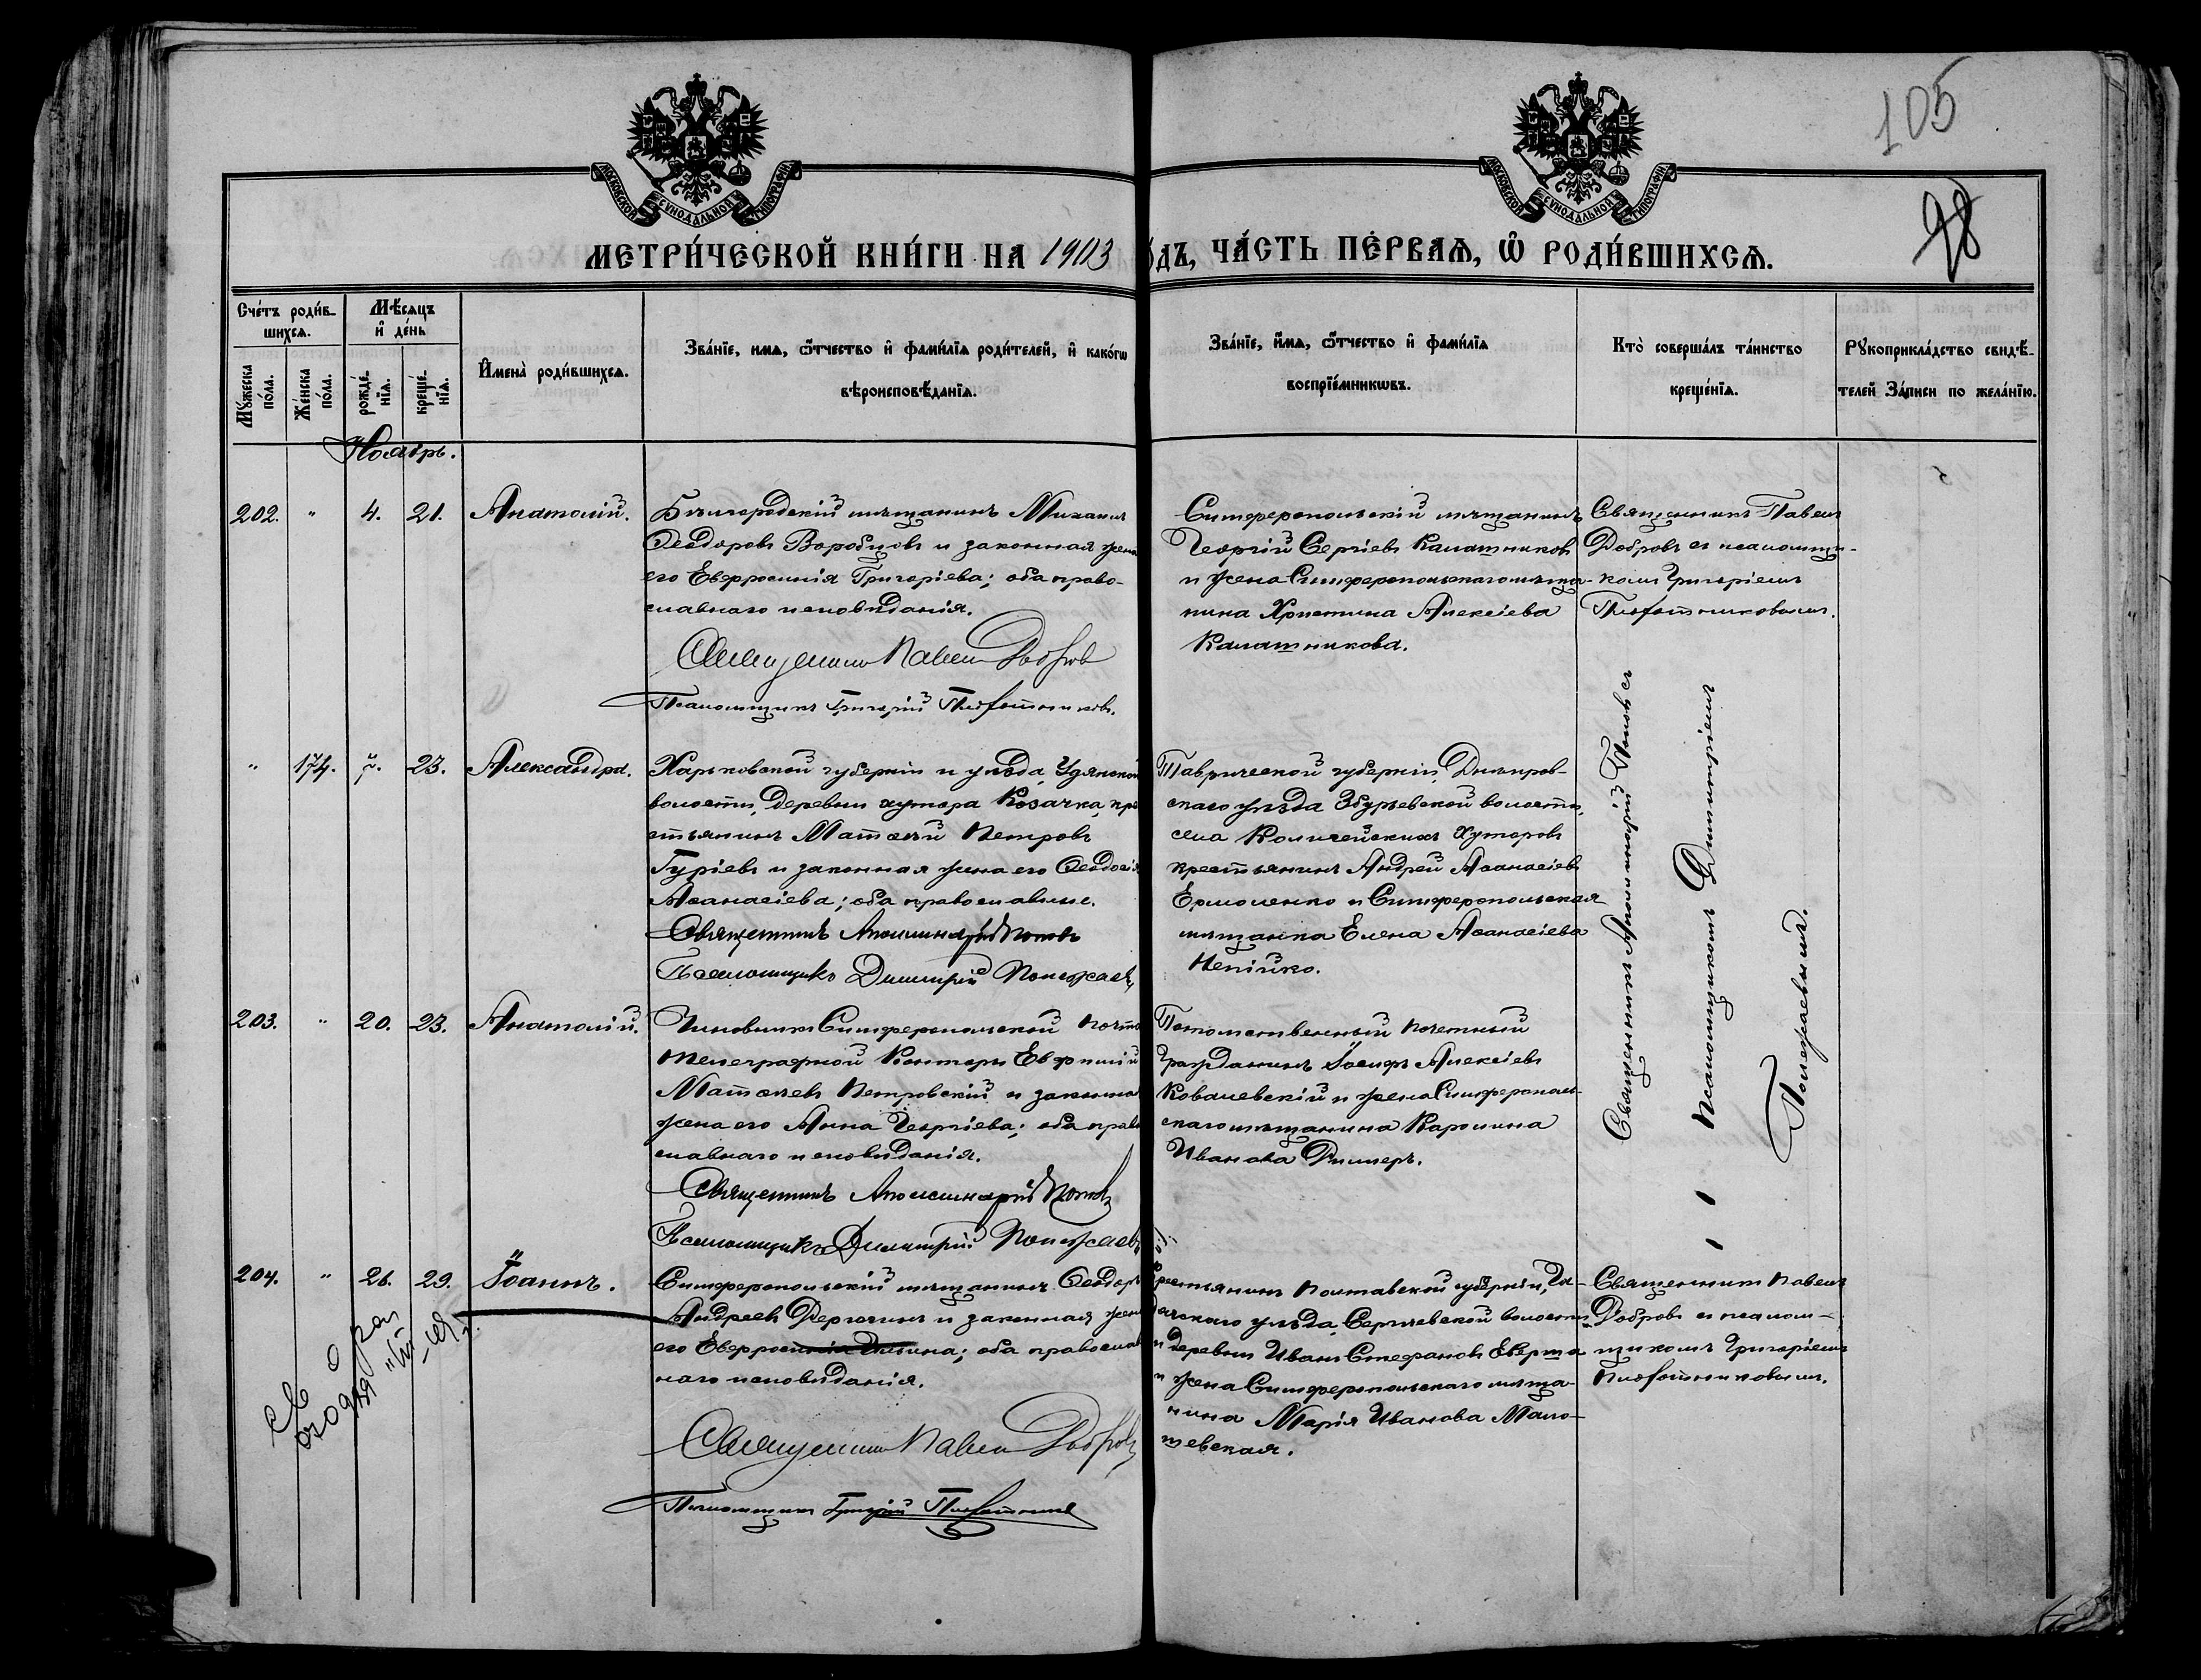 105
98
МОСКОВСКОЙ СУНОДАЛЬНОЙ ТИПОГРАФІИ
МОСКОВСКОЙ СУНОДАЛЬНОЙ ТИПОГРАФІИ
МЕТРИ́ЧЕСКОЙ КНИ́ГИ НА 1903
ѻ́дъ, ЧА́СТЬ ПЕ́РВАѦ, Ѡ РОДИ́ВШИХСѦ.
Сче́тъ роди́в-
шихсѧ.
Мꙋ́жеска
по́ла.
Же́нска
по́ла.
Мѣ́сѧцъ
и҆ де́нь
рожде́-
нїѧ.
креще́-
нїѧ.
И҆мена̀ роди́вшихсѧ.
Зва́нїе, имѧ, ѻ҆́тчество и҆ фами́лїѧ роди́телей, и҆ како́гѡ
вѣроисповѣ́данїѧ.
Зва́нїе, и҆́мѧ, ѻ҆́тчество и҆ фами́лїѧ
воспрїе́мникѡвъ.
Кто̀ соверша́лъ та́инство
креще́нїѧ.
Рꙋкоприкла́дство свидѣ́-
телей За́писи по жела́нїю.
Ноябрь.
202. " 4. 21. Анатолій.
Бѣлгородскій мѣщанинъ Михаилъ
Ѳеодоровъ Воробцовъ и законная жена
его Евфросинія Григоріева; оба право-
славнаго исповѣданія.
Священникъ Павелъ Добровъ
Псаломщикъ Григорій Плохотниковъ.
Симферопольскій мѣщанинъ
Георгій Сергіевъ Калашниковъ
и жена Симферопольскаго мѣща-
нина Христина Алексіева
Калашникова.
Священникъ Павелъ
Добровъ съ псаломщи-
комъ Григоріемъ
Плохотниковымъ.
" 174. 23. Александра.
Харьковской губерніи и уѣзда, Удянской
волости, деревни хутора Козачка, кре
стьянинъ Матѳей Петровъ
Гуріевъ и законная жена его Ѳеодосія
Аѳанасіева; оба православные.
Священникъ Аполлинарій Поповъ
Псаломщикъ Димитрій Полежаевъ
Таврической губерніи, Днѣпров-
скаго уѣзда Збурьевской волости,
села Хуторовъ
крестьянинъ Андрей Аѳанасіевъ
Ермоленко и Симферопольская
мѣщанка Елена Аѳанасіева
Священникъ Аполлинарій Поповъ съ
псаломщикомъ Димитріемъ
Полежаевымъ.
203. " 20. 23. Анатолій.
Чиновникъ Симферопольской почто
телеграфной Конторы Евфимій
Матѳеевъ Петровскій и законная
жена его Анна Георгіева; оба право
славнаго исповѣданія.
Священникъ Аполлинарій Поповъ
Псаломщикъ Димитрій Полежаевъ
Потомственный почетный
гражданинъ Іосифъ Алексіевъ
Ковалевскій и жена Симферополь-
скаго мѣщанина Каролина
Иванова
204. " 26. 29. Іоаннъ.
Симферопольскій мѣщанинъ Ѳеодоръ
Андреевъ Дерюгинъ и законная жена
его Евфросинія Ильина; оба православ
наго исповѣданія.
Священникъ Павелъ Добровъ
Псаломщикъ Григорій Плохотниковъ
рестьянинъ Полтавской губерніи, Га-
дячскаго уѣзда, Сергіевской волости
деревни Иванъ Стефановъ
и жена Симферопольскаго мѣща-
нина Марія Иванова Мало-
шевская.
Священникъ Павелъ
Добровъ съ псалом-
щикомъ Григоріемъ
Плохотниковымъ.